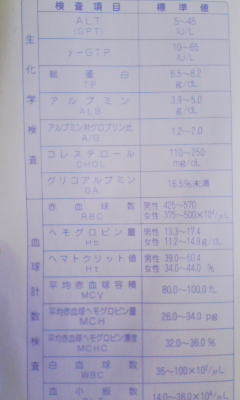 検査項目 標準値
生化学検査
ALT (GPT) 5~45 IU/L
γ-GTP 10~65 IU/L
総蛋白 TP 6.5~8.2 g/dL
アルブミン ALB 3.9~5.0 g/dL
アルブミン対グロブリン比 A/G 1.2~2.0
コレステロール CHOL 110~250 mg/dL
グリコアルブミン GA 16.5%未満
血球計数検査
赤血球数 RBC 男性 425~570
女性 375~500×10⁴/μL
ヘモグロビン量 Hb 男性 13.3~17.4
女性 11.2~14.9g/dL
ヘマトクリット値 Ht 男性 39.0~50.4
女性 34.0~44.0 %
平均赤血球容積 MCV 80.0~100.0 fL
平均赤血球ヘモグロビン量 MCH 26.0~34.0 pg
平均赤血球ヘモグロビン濃度 MCHC 32.0~36.0 %
白血球数 WBC 35~100×10²/μL
血小板数